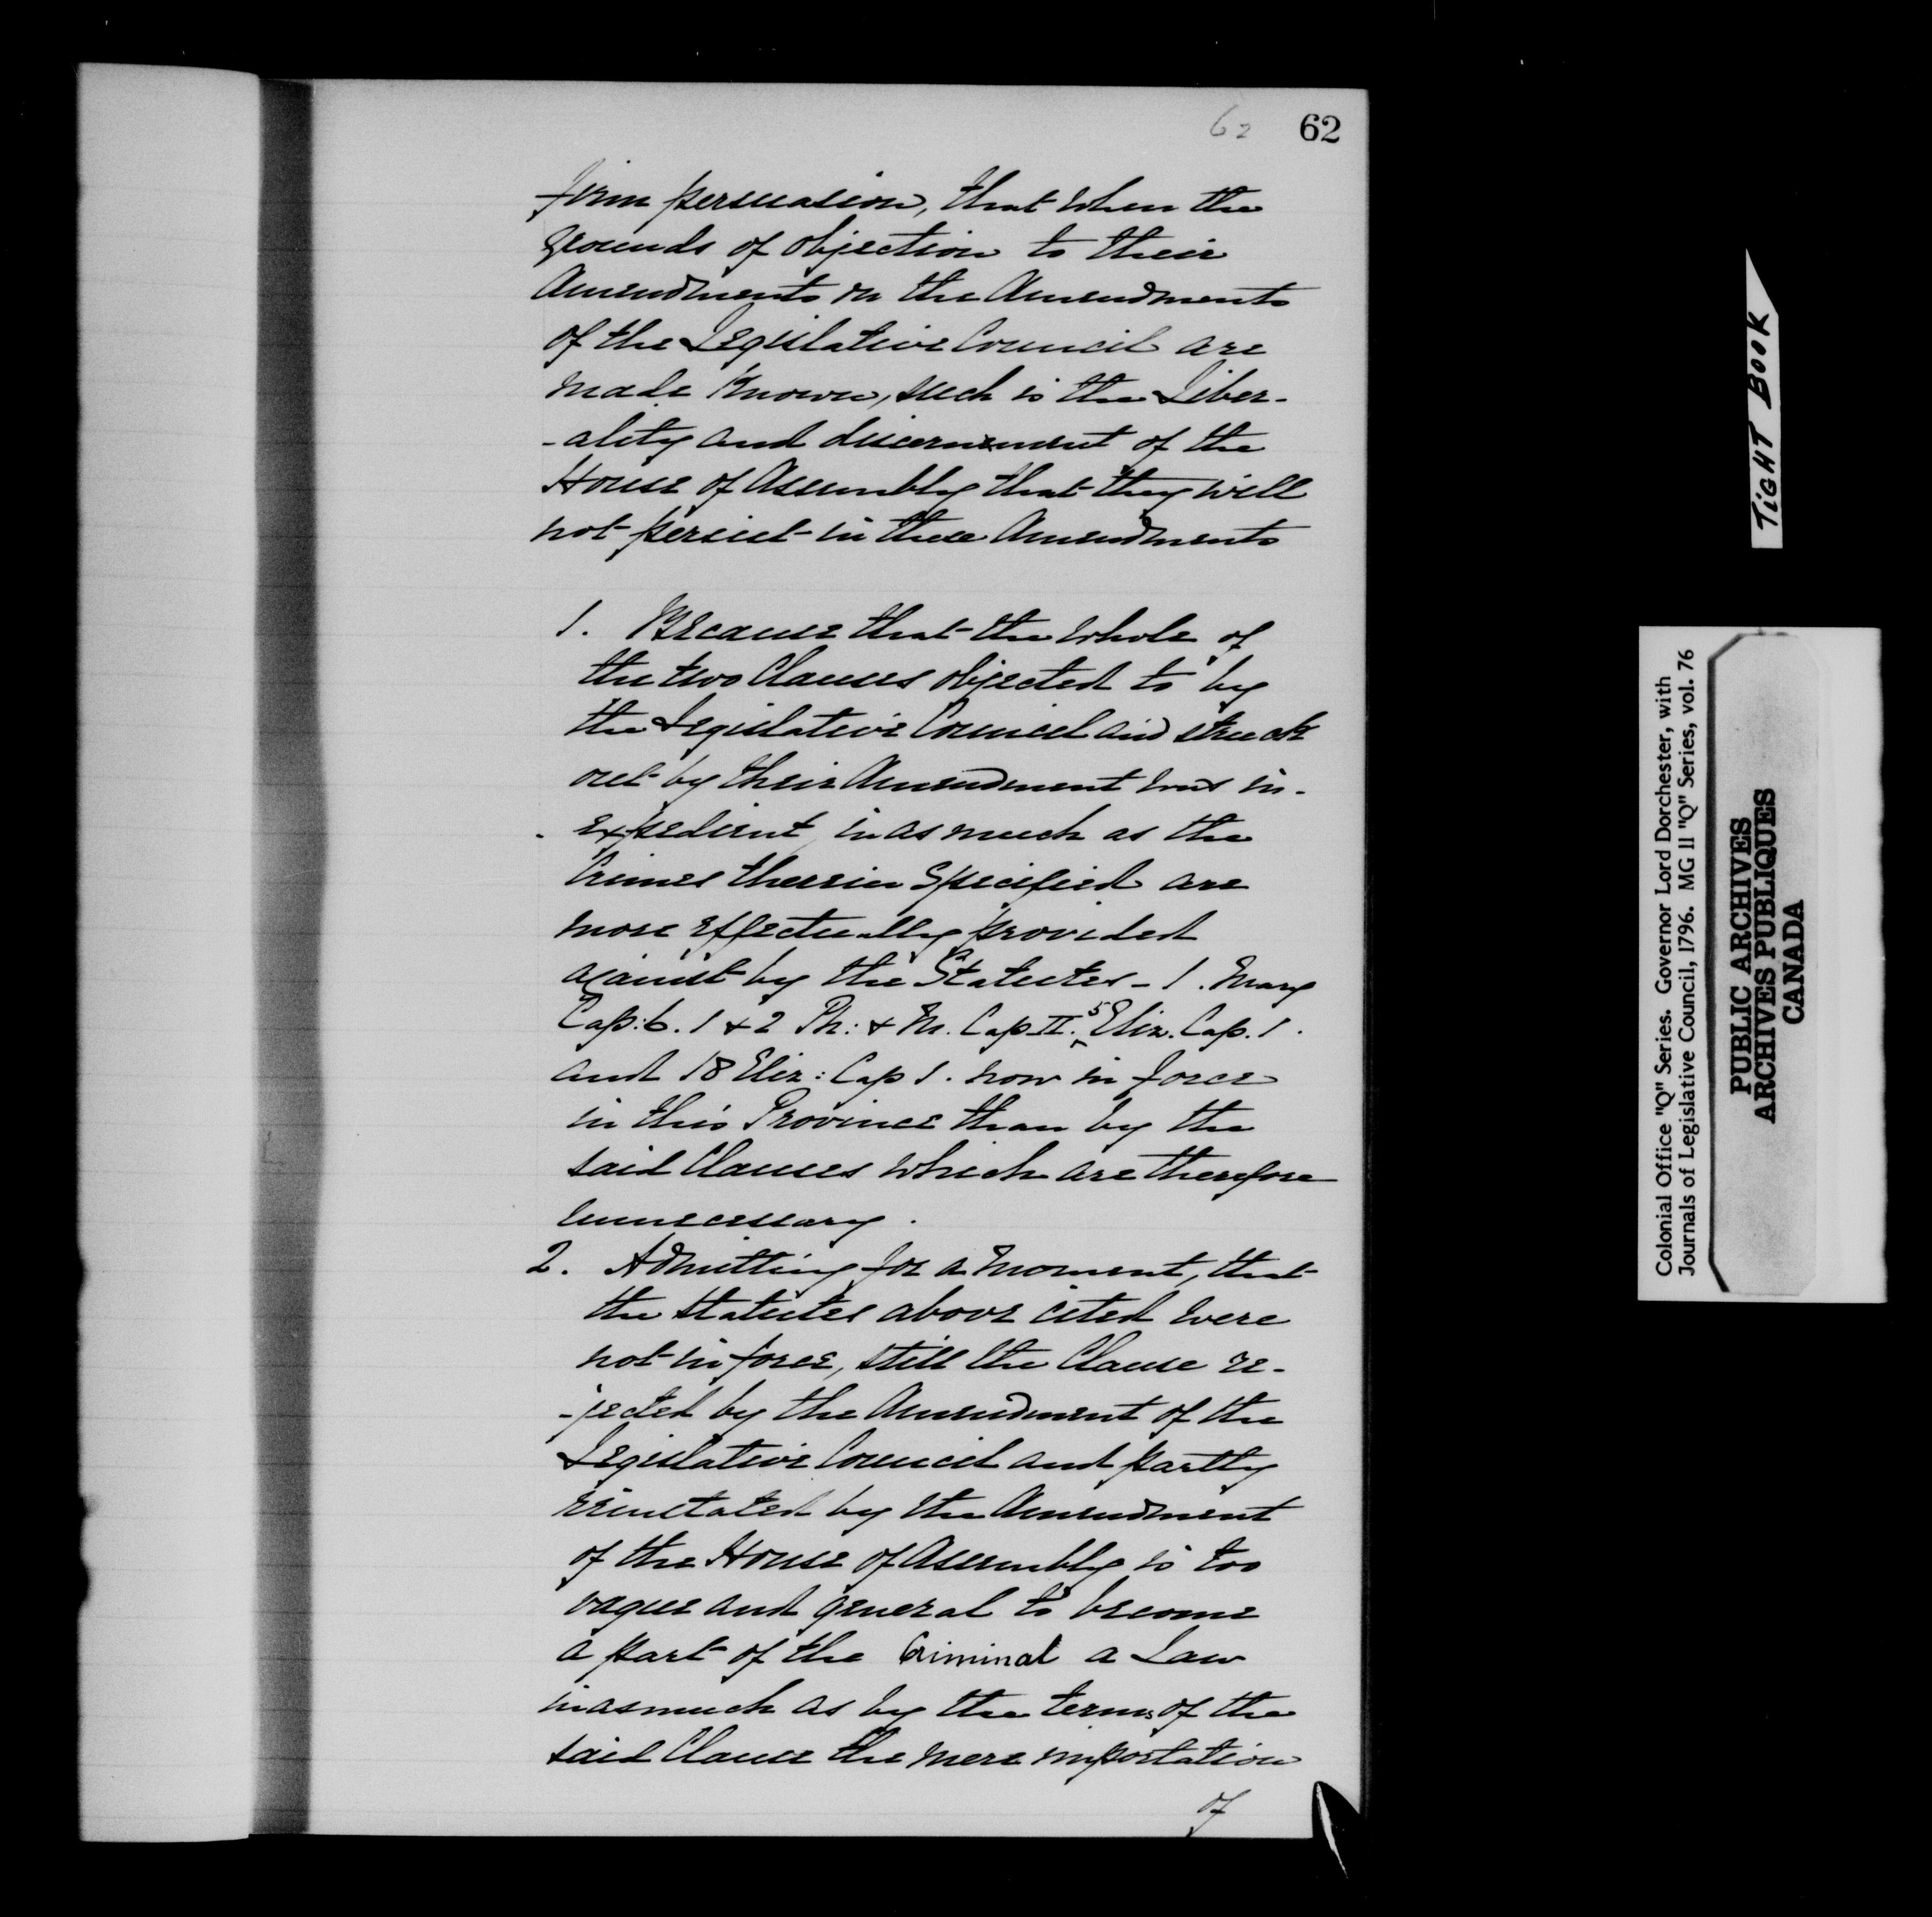 62 62
firm persuasion, that when the
grounds of objection to their
Amendments on the Amendments
of the Legislative Council are
made known, such is the Liber-
-ality and discernment of the
House of Assembly that they will
not persist in these Amendments
1. Because that the whole of
the two Clauses objected to by
the Legislative Council and struck
out by their Amendment was in-
expedient, in as much as the
Crimes therein specified are
more effectually provided
against by the Statutes - 1. Mary
Cap: 6. 1 & 2 Ph: & M. Cap II. 5 Eliz. Cap. 1.
and 18 Eliz: Cap 1. now in force
in this Province than by the
said Clauses which are therefore
unnecessary.
2. Admitting for a moment, that
the statutes above cited were
not in force, still the Clause re-
-jected by the Amendment of the
Legislative Council and partly
reinstated by the Amendment
of the House of Assembly is too
vague and general to become
a part of the Criminal a Law
inasmuch as by the terms of the
said Clause the mere importation
of
TIGHT BOOK
Colonial Office "Q" Series. Governor Lord Dorchester, with
Journals of Legislative Council, 1796. MG 11 "Q" Series, vol. 76
PUBLIC ARCHIVES
ARCHIVES PUBLIQUES
CANADA